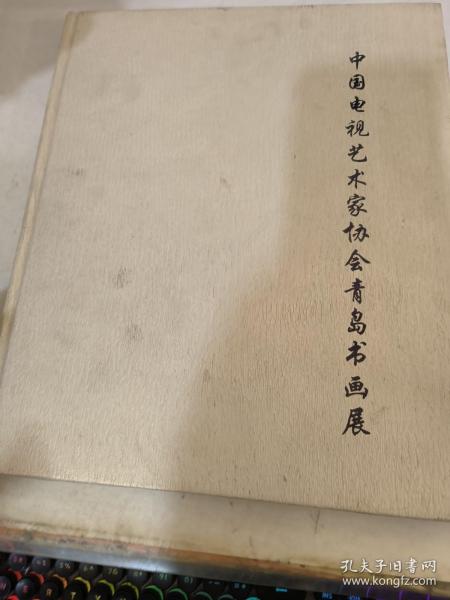 中国电视艺术家协会青岛书画展
孔夫子旧书网
www.kongfz.com